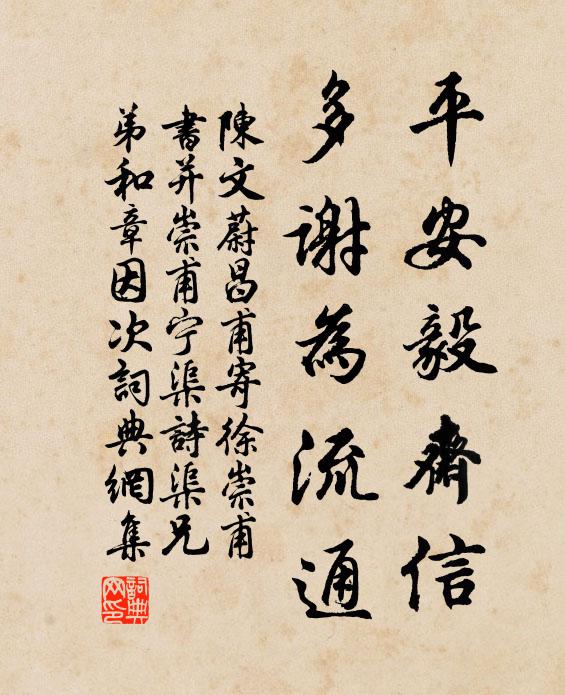 平安毅齋信
多謝為流通
陳文蔚昌甫寄徐崇甫
書并崇甫宁渠詩渠兄
弟和章因次詞典網集
詞典网印